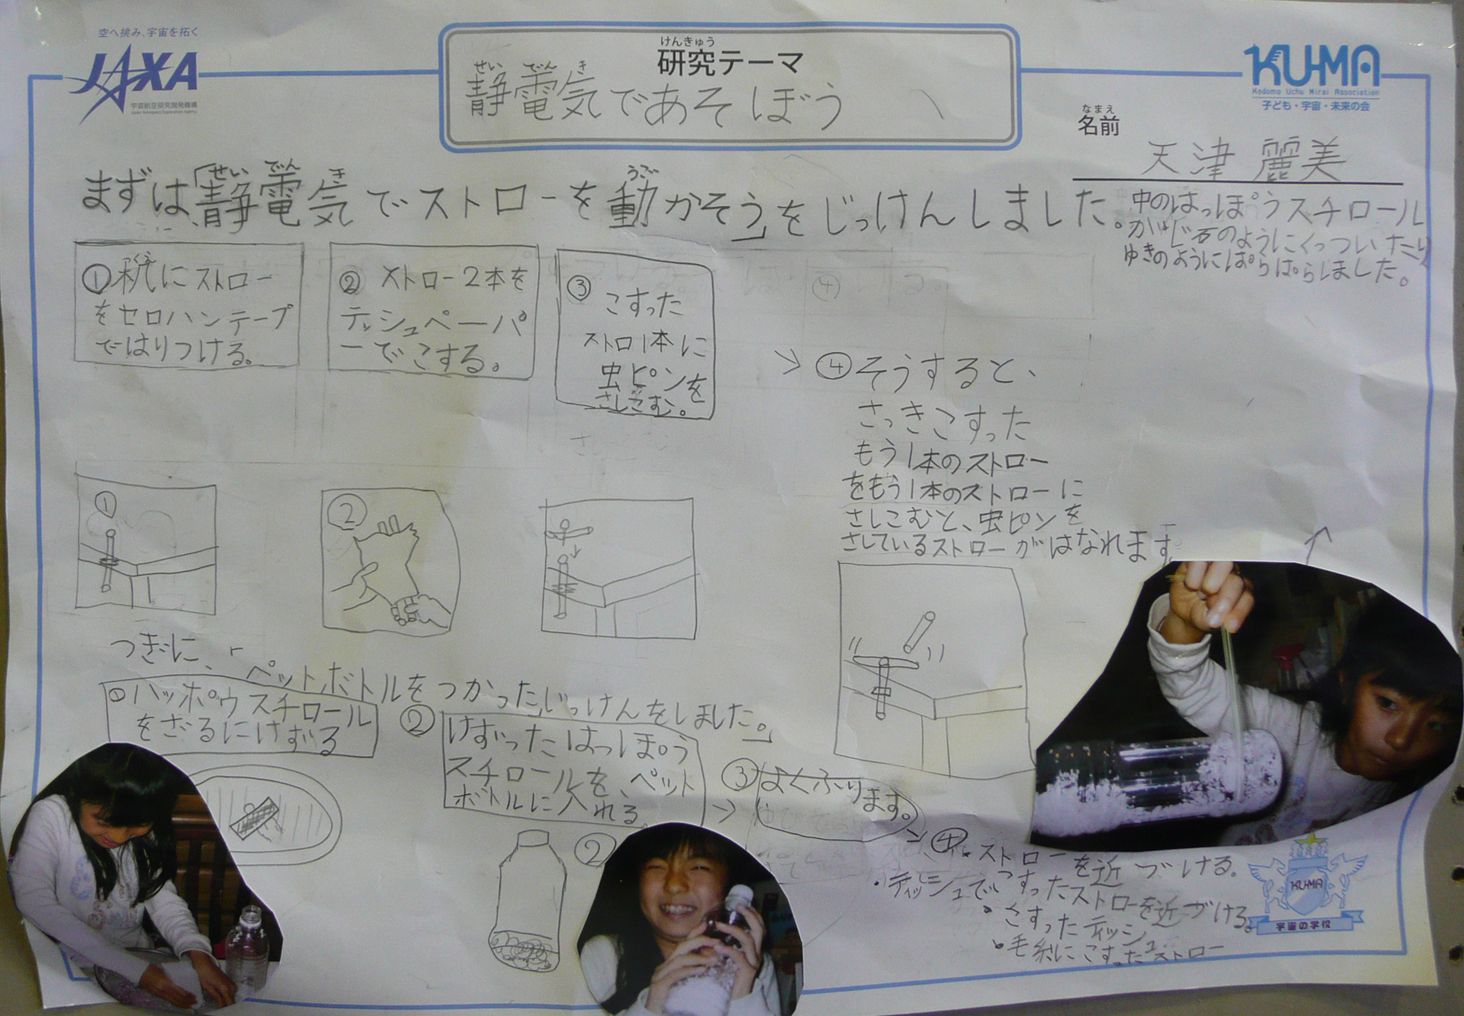 空へ挑み、宇宙を拓く
JAXA
宇宙航空研究開発機構
Japan Aerospace Exploration Agency
けんきゅう
研究テーマ
せい でん き
静電気であそぼう
KU-MA
Kodomo Uchu Mirai Association
子ども・宇宙・未来の会
なまえ
名前
天津 麗美
せい でん き うご
まずは、「静電気でストローを動かそう」をじっけんしました。
①机にストロー
をセロハンテープ
ではりつける。
② ストロー2本を
ティシュペーパ
ーでこする。
③
こすった
ストロ1本に
虫ピンを
さしこむ。
④そうすると、
さっきこすった
もう1本のストロー
をもう1本のストローに
さしこむと、虫ピンを
さしているストローがはなれます
中のはっぽうスチロール
がじ石のようにくっついたり
ゆきのようにぱらぱらしました。
①
②
つぎに、「
ペットボトルをつかったじっけんをしました。」
①ハッポウスチロール
をざるにけずる
②
けずったはっぽう
スチロールを、ペット
ボトルに入れる。
②
③
よくふります。
④
・ストローを近づける。
・ティッシュでこすったストローを近づける。
・こすったティッシュ
・毛糸にこすったストロー
KU-MA
宇宙の学校